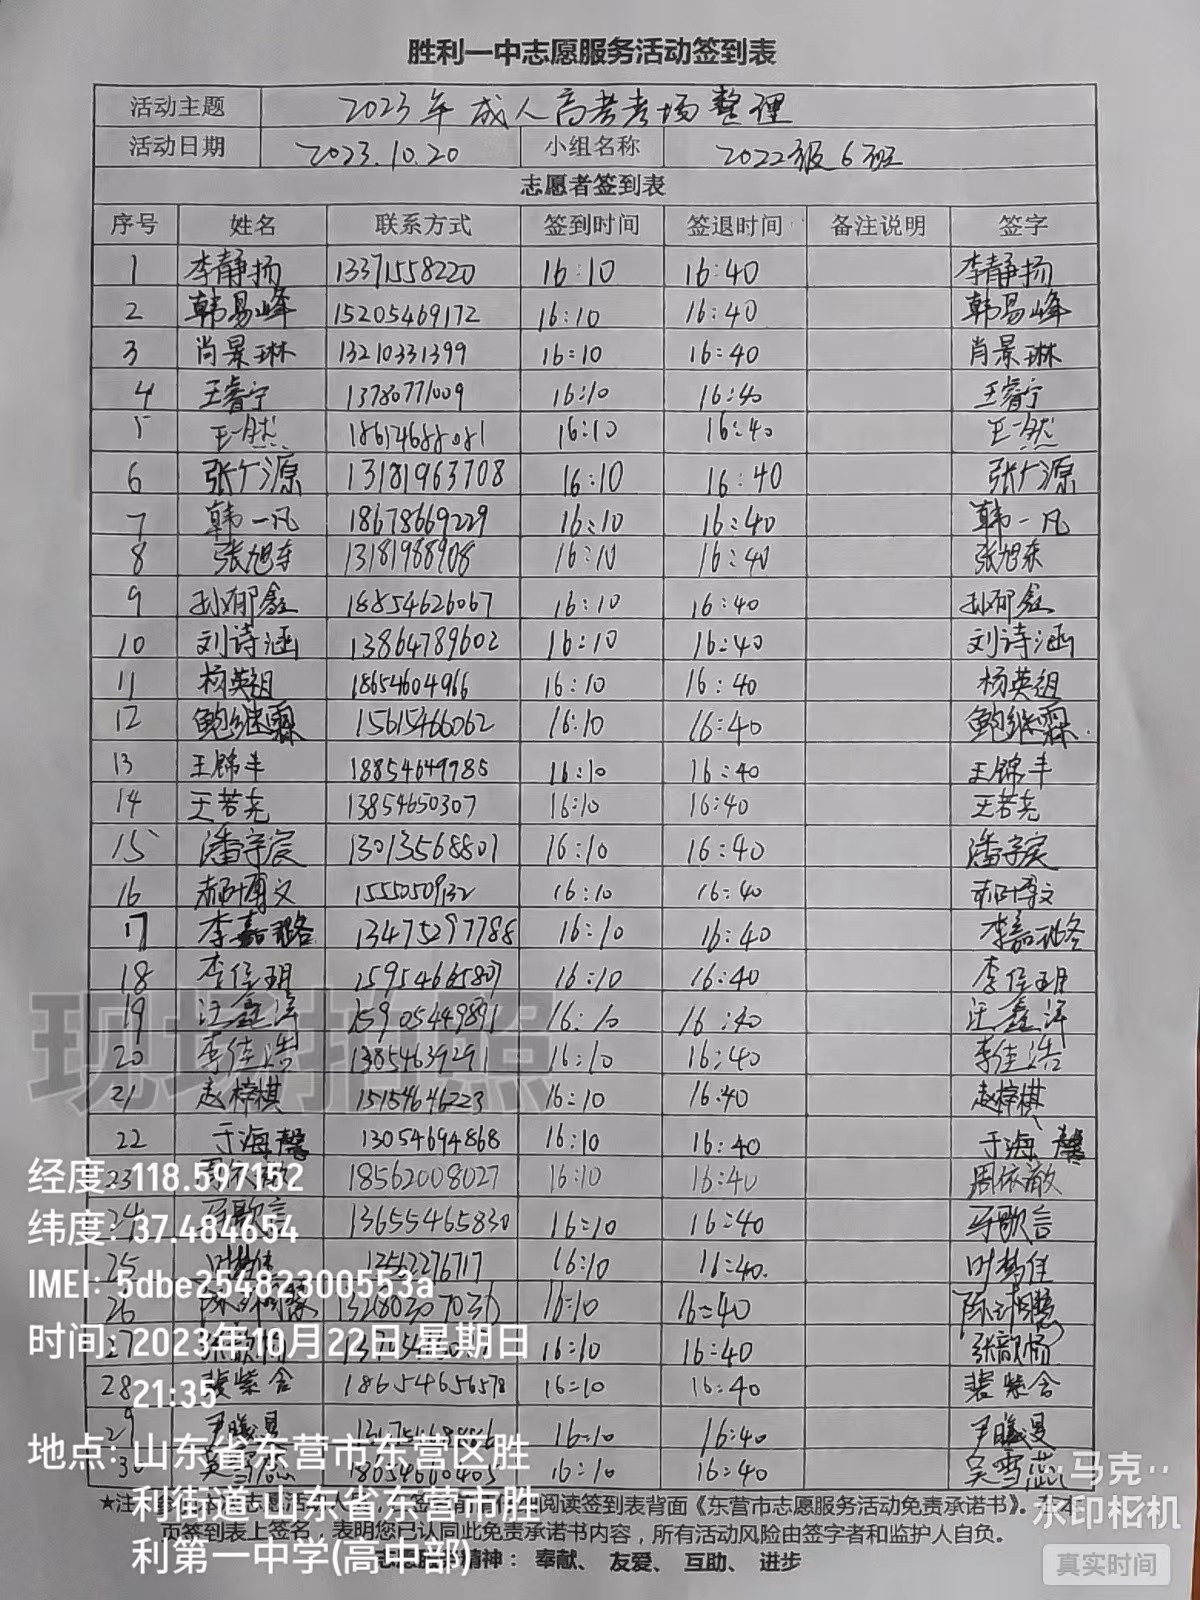 胜利一中志愿服务活动签到表
活动主题 2023年成人高考考场整理
活动日期 2023.10.20 小组名称 2022级6班
志愿者签到表
序号 姓名 联系方式 签到时间 签退时间 备注说明 签字
1 李静扬 13371558220 16:10 16:40 李静扬
2 韩易峰 15205469172 16:10 16:40 韩易峰
3 肖景琳 13210331399 16:10 16:40 肖景琳
4 王睿宁 13780771009 16:10 16:40 王睿宁
5 王一然 18614688081 16:10 16:40 王一然
6 张广源 13181963708 16:10 16:40 张广源
7 韩一凡 18678669229 16:10 16:40 韩一凡
8 张旭东 13181988908 16:10 16:40 张旭东
9 孙郁鑫 18854626067 16:10 16:40 孙郁鑫
10 刘诗涵 13864789602 16:10 16:40 刘诗涵
11 杨英组 18654604966 16:10 16:40 杨英组
12 鲍继霖 15615466062 16:10 16:40 鲍继霖
13 王锦丰 18854649785 16:10 16:40 王锦丰
14 王若尧 13854650307 16:10 16:40 王若尧
15 潘宇宸 13013568801 16:10 16:40 潘宇宸
16 郝博文 16:10 16:40 郝博文
17 李嘉璐 13475297788 16:10 16:40 李嘉璐
18 李佳玥 15954665807 16:10 16:40 李佳玥
19 汪鑫洋 15905449891 16:10 16:40 汪鑫洋
20 李佳浩 13854639291 16:10 16:40 李佳浩
21 赵梓棋 15154646223 16:10 16:40 赵梓棋
22 于海馨 13054694868 16:10 16:40 于海馨
23 周依澈 18562008027 16:10 16:40 周依澈
24 马歌言 13655465830 16:10 16:40 马歌言
25 叶梦佳 13562276717 16:10 16:40 叶梦佳
26 13280307036 16:10 16:40
27 16:10 16:40 张歆悦
28 裴紫含 18654656578 16:10 16:40 裴紫含
29 尹曦曼 16:10 16:40 尹曦曼
30 吴雪蕊 18654660403 16:10 16:40 吴雪蕊
★注 阅读签到表背面《东营市志愿服务活动免责承诺书》。
页签到表上签名，表明您已认同此免责承诺书内容，所有活动风险由签字者和监护人自负。
志愿服务精神： 奉献、 友爱、 互助、 进步
现场拍照
经度: 118.597152
纬度: 37.484654
IMEI: 5dbe25482300553a
时间: 2023年10月22日 星期日
21:35
地点: 山东省东营市东营区胜
利街道 山东省东营市胜
利第一中学(高中部)
马克
水印相机
真实时间